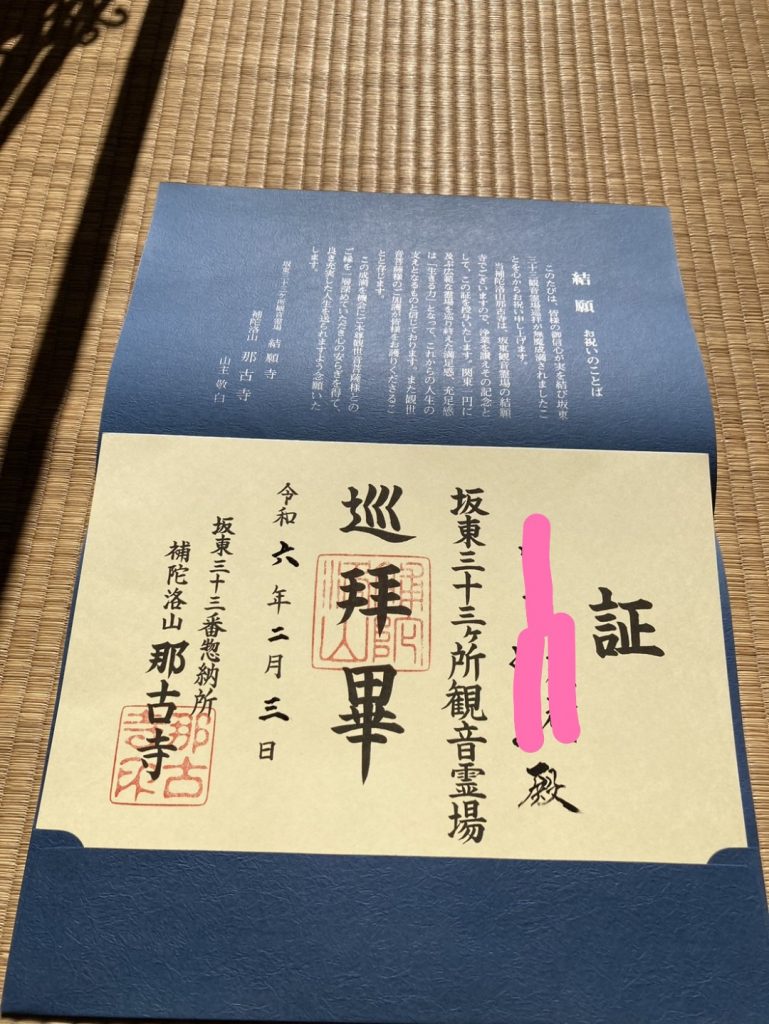 結願 お祝いのことば
このたびは、皆様の御信心が実を結び坂東
三十三観音霊場巡拝が無魔成満されましたこ
とを心からお祝い申し上げます。
当補陀洛山那古寺は、坂東観音霊場の結願
寺でございますので、浄業を讃えその記念と
して、この証を授与いたします。関東一円に
及ぶ広範な霊場を巡り終えた満足感、充足感
は「生きる力」となって、これからの人生の
支えとなるものと信じております。また観世
音菩薩様のご加護が皆様をお護りくださるこ
とと存じます。
この成満を機会にご本尊観世音菩薩様との
ご縁を一層深めていただき心の安らぎを得て、
良き充実した人生を送られますよう念願いた
します。
坂東三十三ヶ所観音霊場 結願寺
補陀洛山 那古寺
山主 敬白
証
殿
坂東三十三ヶ所観音霊場
巡拝畢
令和六年二月三日
坂東三十三番惣納所
補陀洛山 那古寺